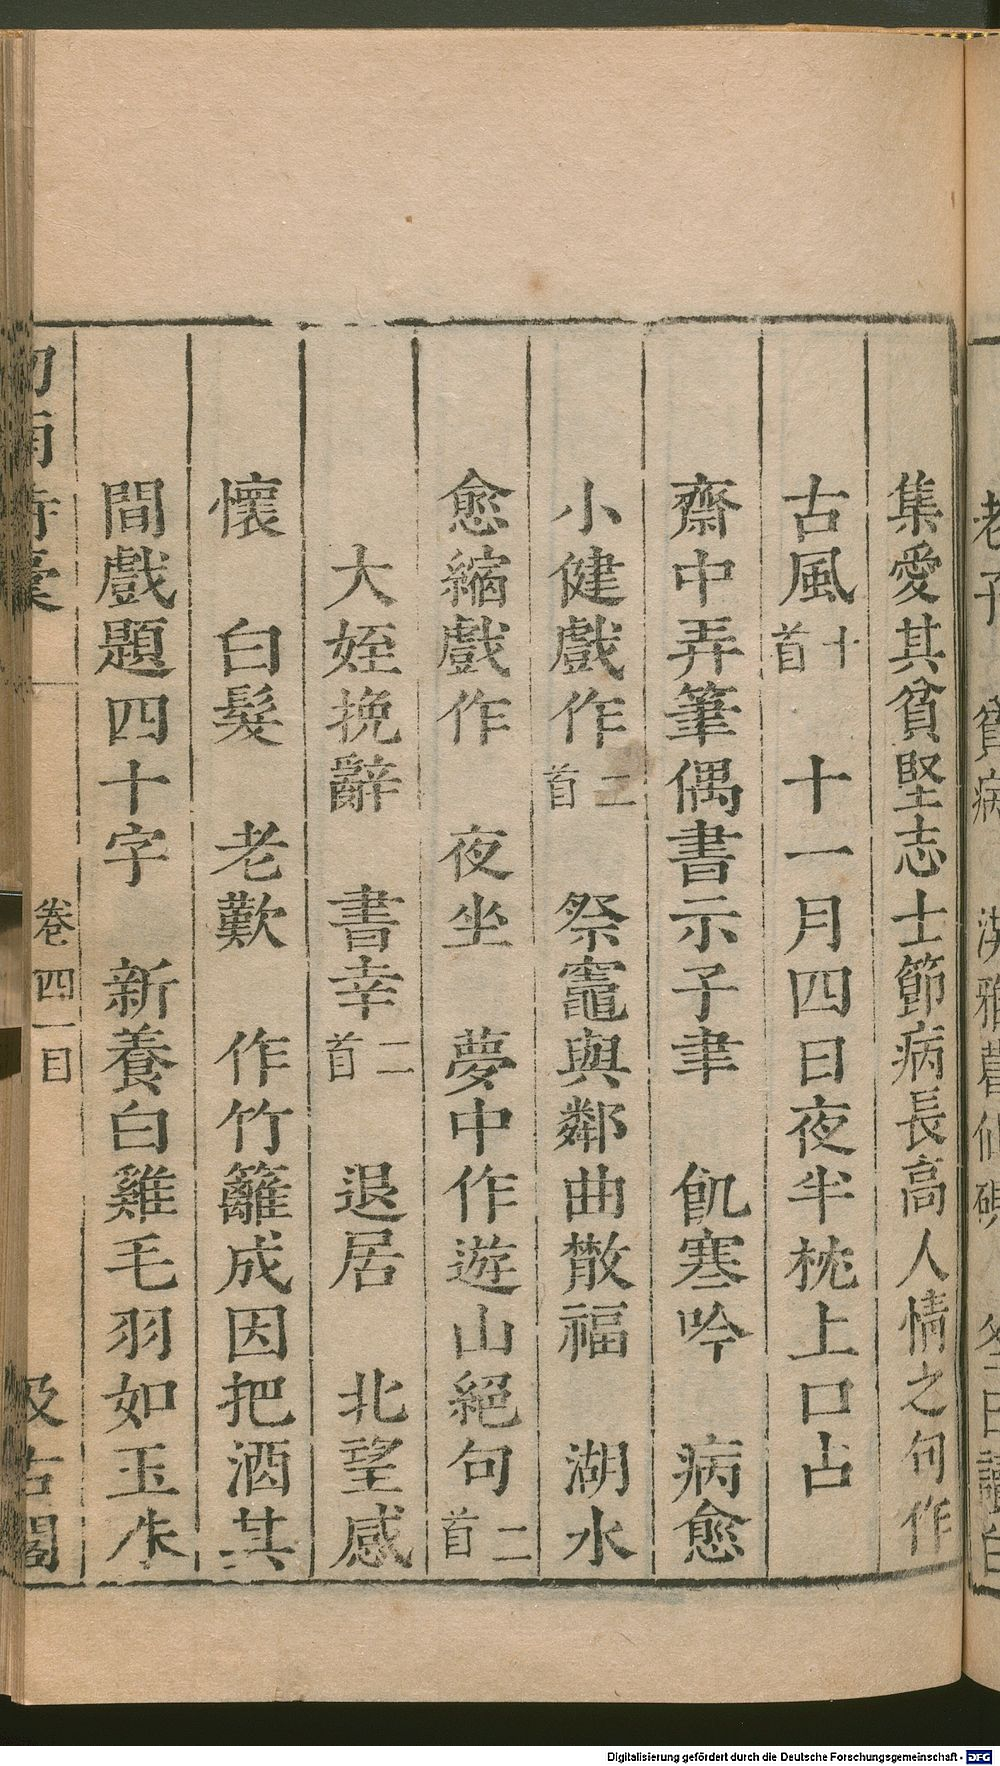 集愛其貧堅志士節病長高人情之句作
古風十首　十一月四日夜半枕上口占
齋中弄筆偶書示子聿　飢寒吟　病愈
小健戲作二首　祭竈與鄰曲散福　湖水
愈縮戲作　夜坐　夢中作遊山絕句二首
大姪挽辭　書幸二首　退居　北望感
懷　白髮　老歎　作竹籬成因把酒其
間戲題四十字　新養白雞毛羽如玉殊
劍南詩稾　卷四一目　汲古閣
Digitalisierung gefördert durch die Deutsche Forschungsgemeinschaft - DFG